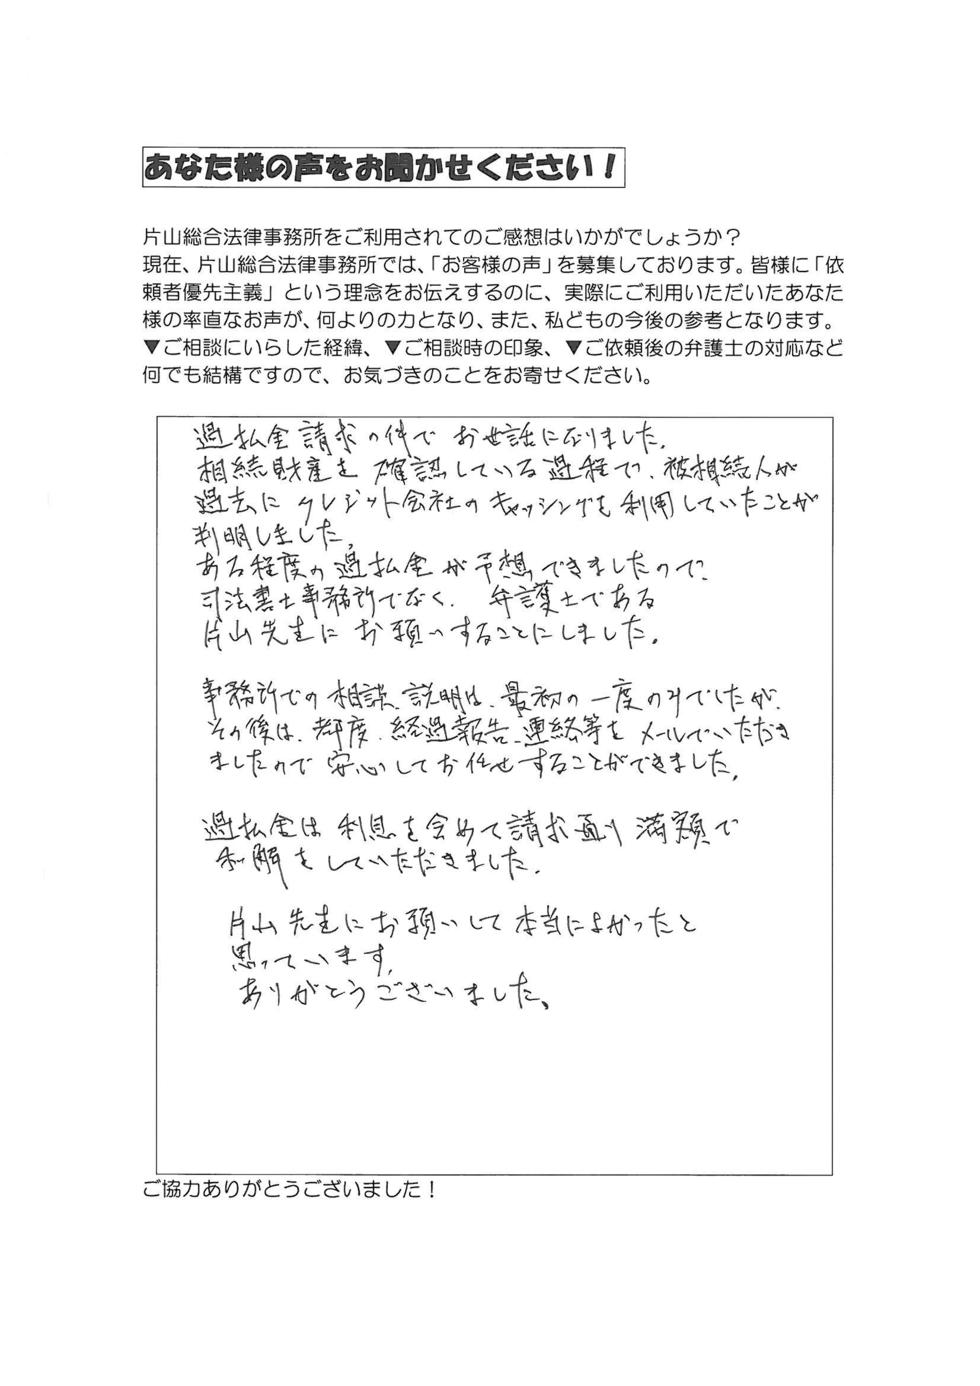 あなた様の声をお聞かせください！
片山総合法律事務所をご利用されてのご感想はいかがでしょうか？
現在、片山総合法律事務所では、「お客様の声」を募集しております。皆様に「依
頼者優先主義」という理念をお伝えするのに、実際にご利用いただいたあなた
様の率直なお声が、何よりの力となり、また、私どもの今後の参考となります。
▼ご相談にいらした経緯、▼ご相談時の印象、▼ご依頼後の弁護士の対応など
何でも結構ですので、お気づきのことをお寄せください。
過払金請求の件で お世話になりました。
相続財産を 確認している過程で、被相続人が
過去に クレジット会社の キャッシングを利用していたことが
判明しました。
ある程度の過払金が予想できましたので、
司法書士事務所でなく、弁護士である
片山先生に お願いすることにしました。
事務所での相談、説明は、最初の一度のみでしたが、
その後は、都度、経過報告、連絡等を メールでいただき
ましたので 安心してお任せすることができました。
過払金は利息を含めて請求通り 満額で
和解をしていただきました。
片山先生にお願いして本当によかったと
思っています。
ありがとうございました。
ご協力ありがとうございました！